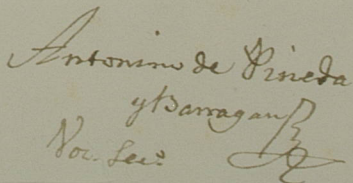 Antonino de Pineda
y Barragan
Voc. Sec.º